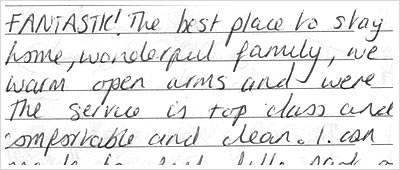 FANTASTIC! The best place to stay
home, wonderful family, we
warm open arms and were
The service is top class and
comfortable and clean. I can